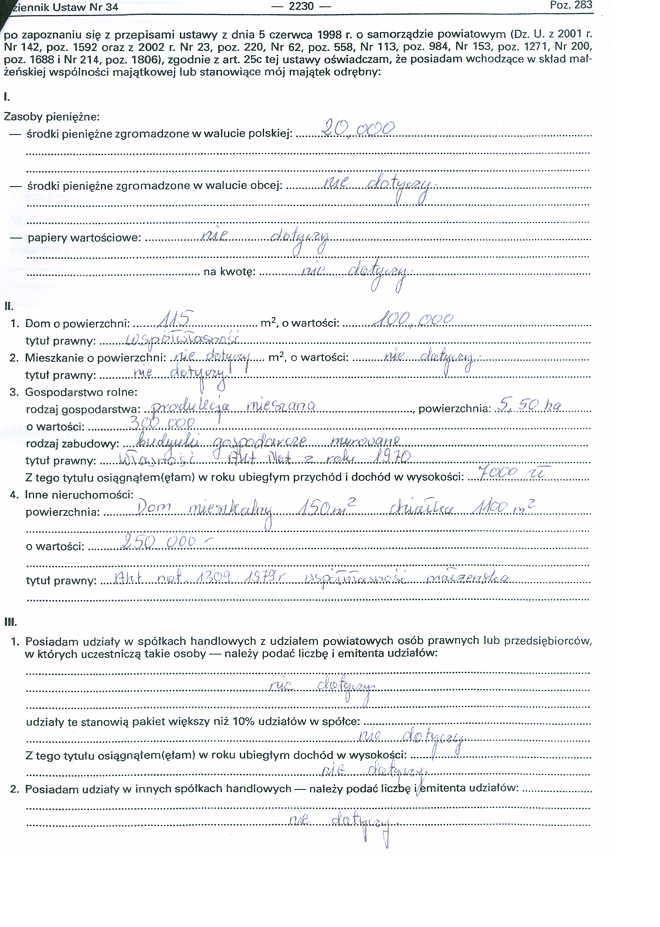 Dziennik Ustaw Nr 34 — 2230 — Poz. 283
po zapoznaniu się z przepisami ustawy z dnia 5 czerwca 1998 r. o samorządzie powiatowym (Dz. U. z 2001 r.
Nr 142, poz. 1592 oraz z 2002 r. Nr 23, poz. 220, Nr 62, poz. 558, Nr 113, poz. 984, Nr 153, poz. 1271, Nr 200,
poz. 1688 i Nr 214, poz. 1806), zgodnie z art. 25c tej ustawy oświadczam, że posiadam wchodzące w skład mał-
żeńskiej wspólności majątkowej lub stanowiące mój majątek odrębny:
I.
Zasoby pieniężne:
— środki pieniężne zgromadzone w walucie polskiej: 20,000
— środki pieniężne zgromadzone w walucie obcej: nie dotyczy
— papiery wartościowe: nie dotyczy
na kwotę: nie dotyczy
II.
1. Dom o powierzchni: 115 m², o wartości: 100,000
tytuł prawny: współwłasność
2. Mieszkanie o powierzchni: nie dotyczy m², o wartości: nie dotyczy
tytuł prawny: nie dotyczy
3. Gospodarstwo rolne:
rodzaj gospodarstwa: produkcja mieszana, powierzchnia: 5,50 ha
o wartości: 300 000
rodzaj zabudowy: budynki gospodarcze murowane
tytuł prawny: własność Akt Not z roku 1970
Z tego tytułu osiągnąłem(ęłam) w roku ubiegłym przychód i dochód w wysokości: 7000 zł
4. Inne nieruchomości:
powierzchnia: Dom mieszkalny 150 m² działka 1100 m²
o wartości: 250 000
tytuł prawny: Akt not 1309 1979 r współwłasność małżeńska
III.
1. Posiadam udziały w spółkach handlowych z udziałem powiatowych osób prawnych lub przedsiębiorców,
w których uczestniczą takie osoby — należy podać liczbę i emitenta udziałów:
nie dotyczy
udziały te stanowią pakiet większy niż 10% udziałów w spółce:
nie dotyczy
Z tego tytułu osiągnąłem(ęłam) w roku ubiegłym dochód w wysokości:
nie dotyczy
2. Posiadam udziały w innych spółkach handlowych — należy podać liczbę i emitenta udziałów:
nie dotyczy